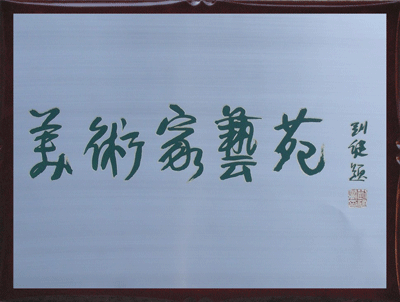 美術家藝苑
刘继题